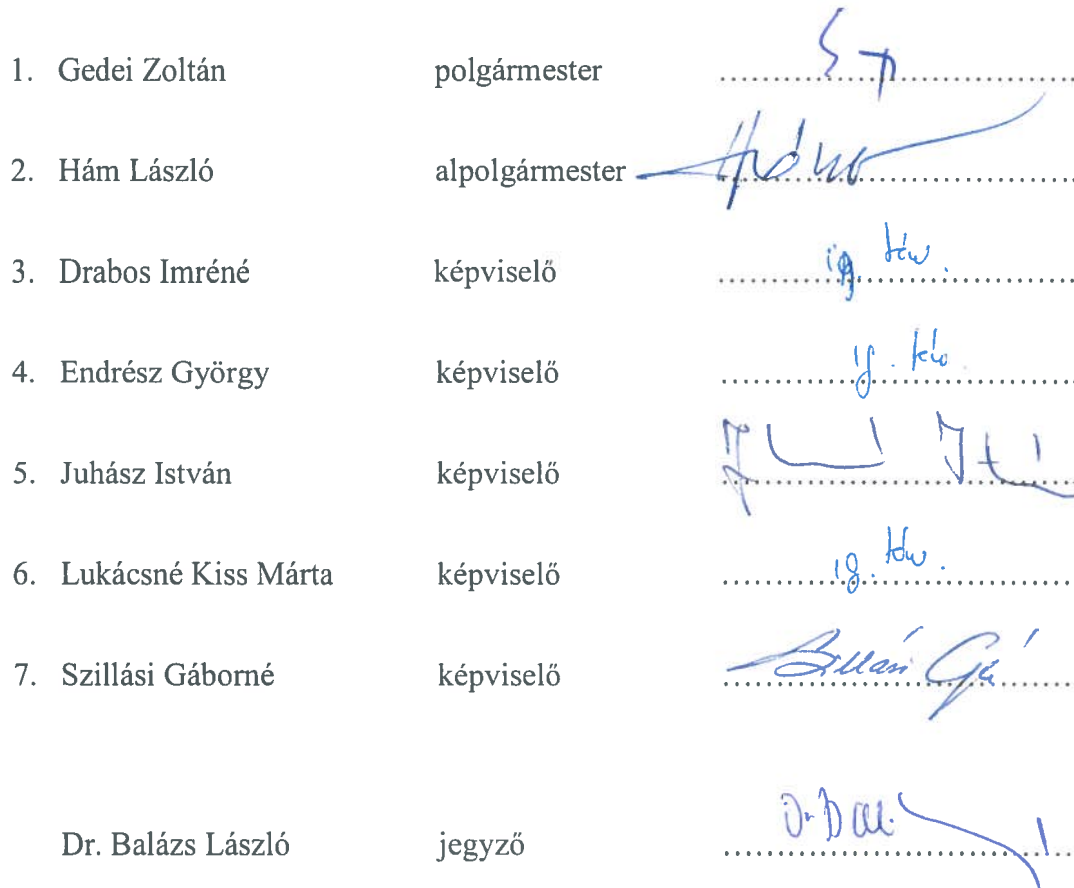 1. Gedei Zoltán polgármester
2. Hám László alpolgármester
3. Drabos Imréné képviselő ig. táv.
4. Endrész György képviselő ig. táv.
5. Juhász István képviselő
6. Lukácsné Kiss Márta képviselő ig. táv.
7. Szillási Gáborné képviselő
Dr. Balázs László jegyző